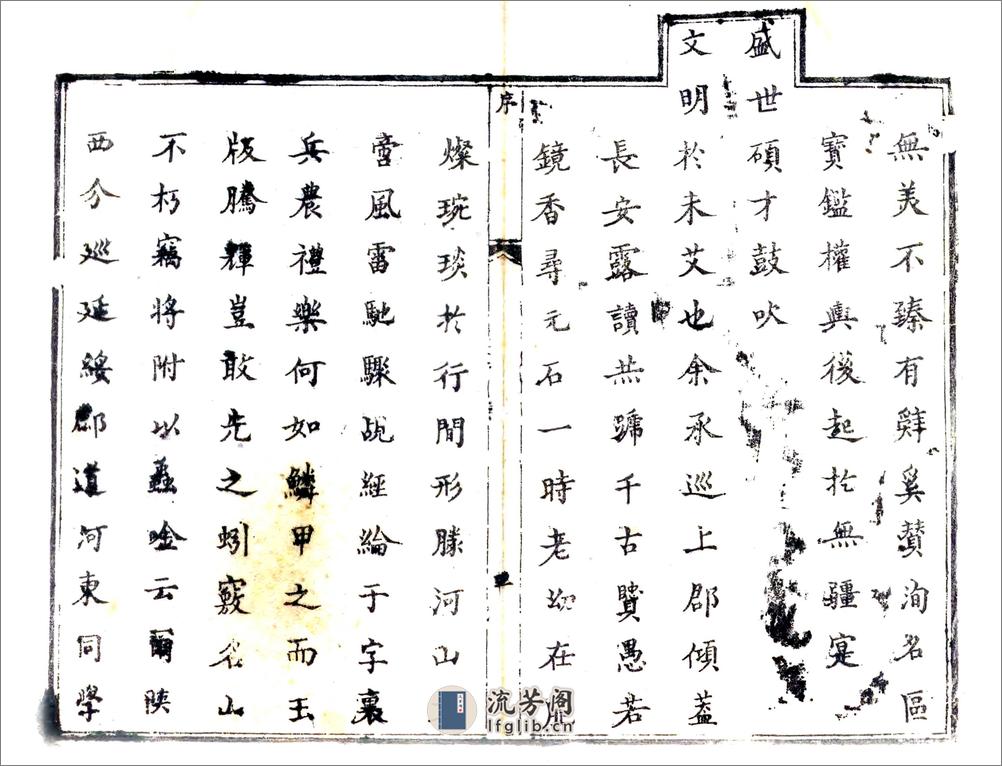 無美不臻有辭奚贊洵名區
寳鑑權輿後起於無疆寔
盛世碩才鼓吹
文明於未艾也余承巡上郡傾蓋
長安露讀共蹏千古贒愚若
鏡香尋元石一時老㓜在
序
燦琬琰於行間形勝河山
啻風雷馳驟覘經綸于字裏
兵農禮樂何如鱗甲之而玉
版騰輝豈敢先之蚓竅名山
不朽竊將附以蟲唫云爾陝
西分巡延綏鄜道河東同學
流芳阁
lfglib.cn